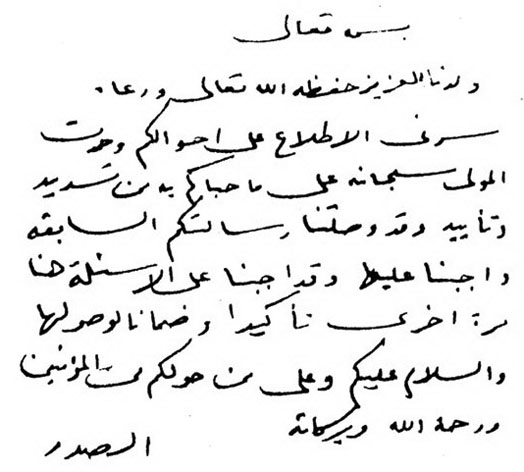 بسمه تعالى
ولدنا العزيز حفظه الله تعالى ورعاه
سرني الاطلاع على احوالكم وحمدت
المولى سبحانه على ما حباكم به من تسديد
وتأييد وقد وصلتنا رسالتكم السابقه
واجبنا عليها وقد اجبنا على الاسئلة هنا
مرة اخرى تأكيدا وضمانا لوصولها
والسلام عليكم وعلى من حولكم من المؤمنين
ورحمة الله وبركاته
الصدر